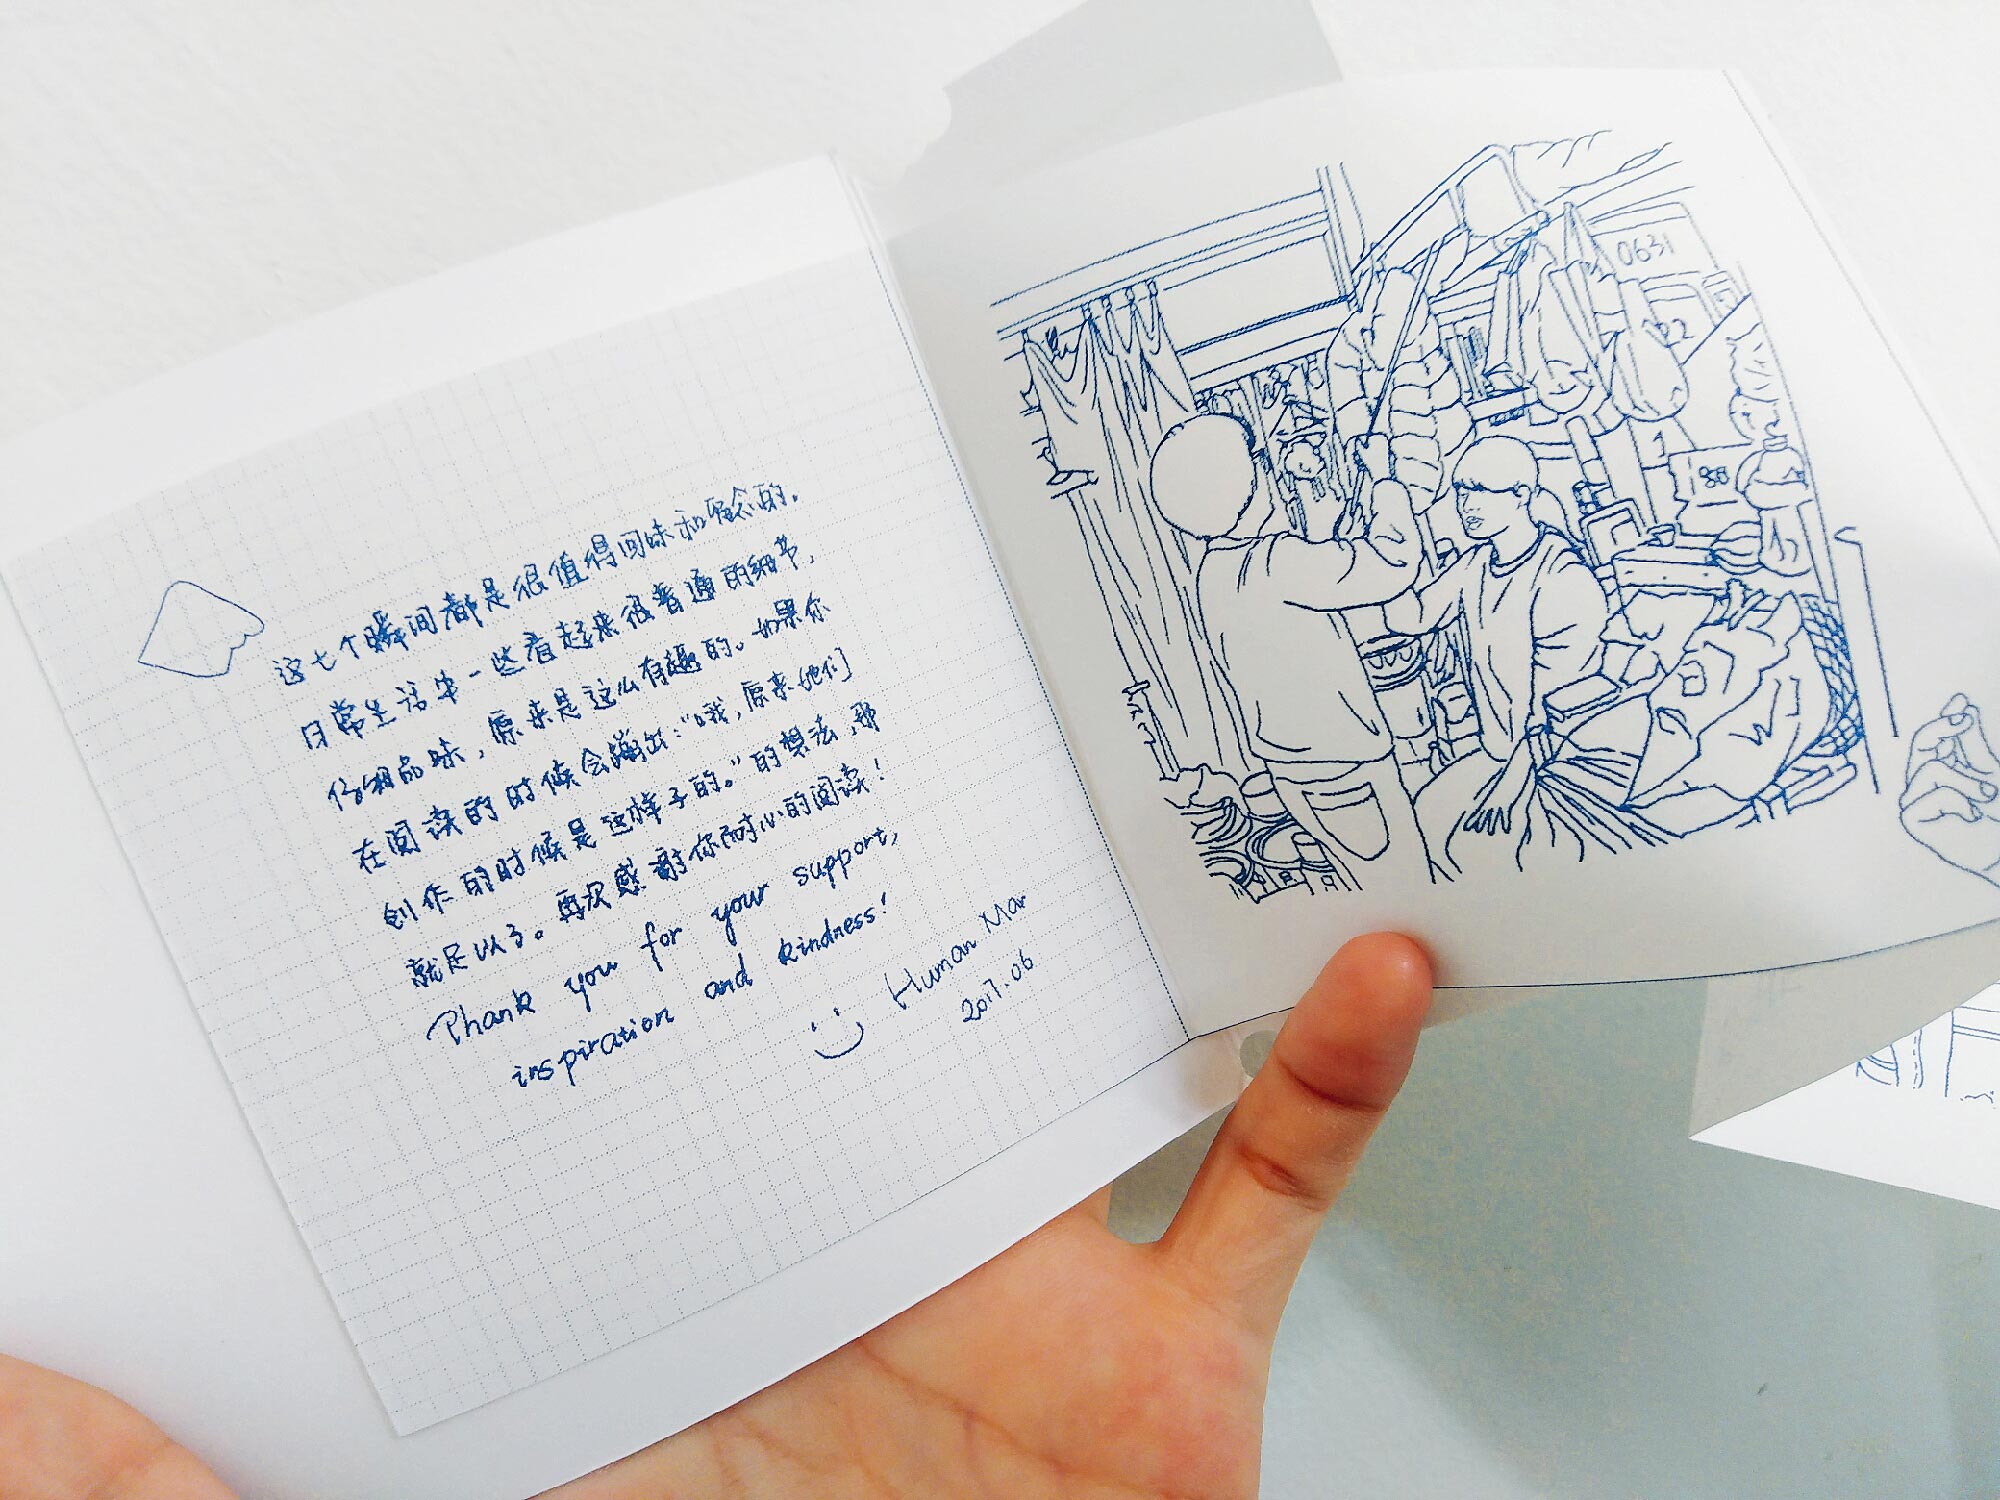 这七个瞬间都是很值得回味和留念的。
日常生活中一些看起来很普通的细节，
仔细品味，原来是这么有趣的。如果你
在阅读的时候会蹦出：“哦，原来她们
创作的时候是这样子的。”的想法，那
就足以了。再次感谢你耐心的阅读！
Thank you for your support,
inspiration and kindness!
Human Mar
2017.06
0631